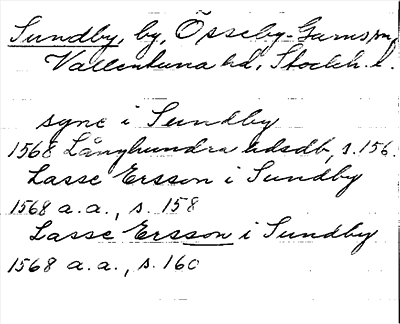 Sundby, by, Össeby-Garns sn,
Vallentuna hd, Stockh. l.
sync i Sundby
1568 Långhundra hdsdb, s. 156.
Lasse Ersson i Sundby
1568 a. a., s. 158
Lasse Ersson i Sundby
1568 a. a., s. 160